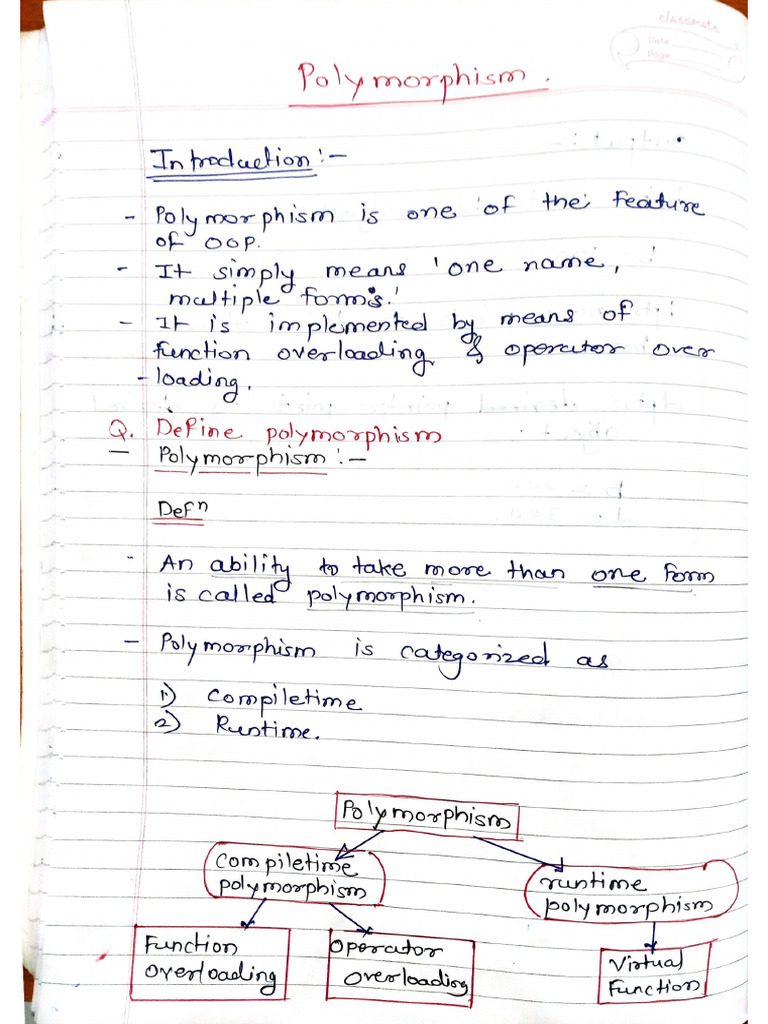 classmate
Date
Page
Polymorphism.
Introduction:-
- Polymorphism is one of the feature
of OOP.
- It simply means 'one name,
multiple forms.'
- It is implemented by means of
function overloading & operator over
-loading.
Q. Define polymorphism
- Polymorphism:-
Defⁿ
- An ability to take more than one form
is called polymorphism.
- Polymorphism is categorized as
1) Compiletime
2) Runtime.
Polymorphism
Compiletime
polymorphism
runtime
polymorphism
Function
overloading
Operator
overloading
Virtual
Function